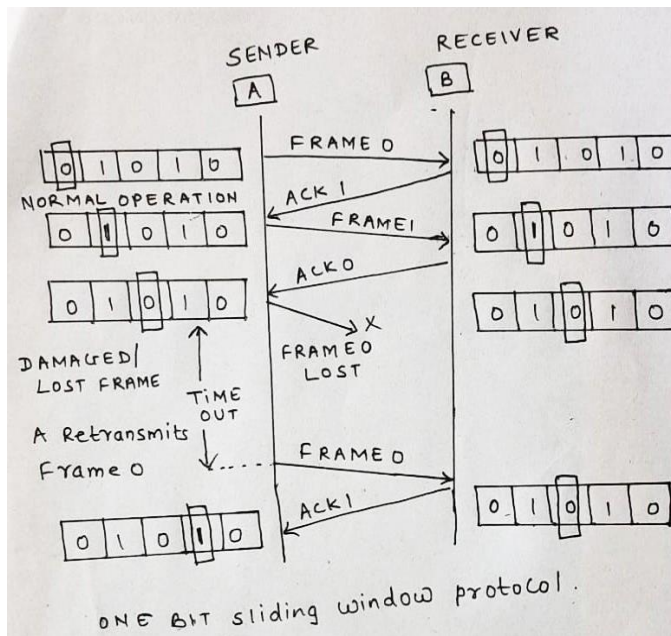 SENDER
RECEIVER
A
B
0 1 0 1 0
FRAME 0
0 1 0 1 0
NORMAL OPERATION
ACK 1
0 1 0 1 0
FRAME 1
0 1 0 1 0
ACK 0
0 1 0 1 0
0 1 0 1 0
X
FRAME 0
LOST
DAMAGED/
LOST FRAME
TIME
OUT
A Retransmits
Frame 0
FRAME 0
ACK 1
0 1 0 1 0
0 1 0 1 0
ONE BIT sliding window protocol.